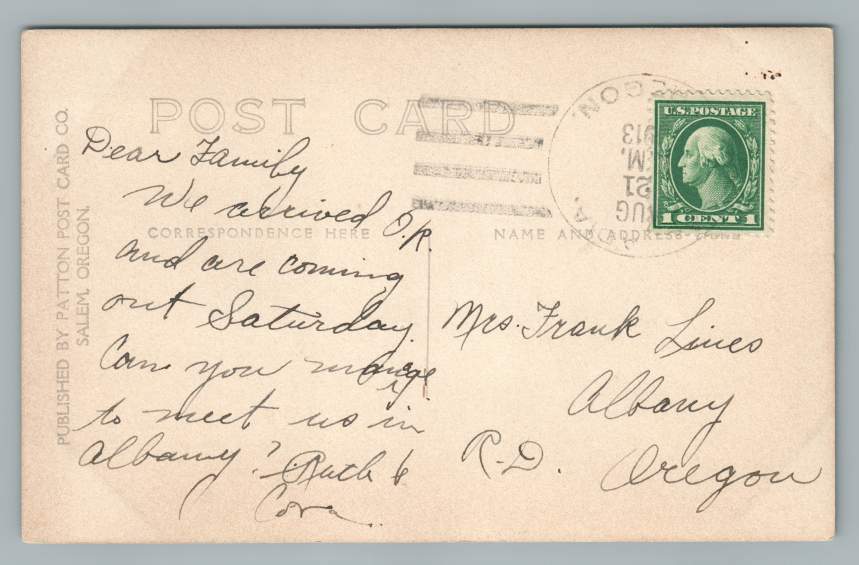 POST CARD
CORRESPONDENCE HERE
NAME AND ADDRESS HERE
PUBLISHED BY PATTON POST CARD CO.
SALEM, OREGON.
OREGON.
AUG
21
M.
1913
U.S. POSTAGE
1 CENT 1
Dear Family
We arrived O.K.
and are coming
out Saturday.
Can you manage
to meet us in
Albany? Ruth &
Cora.
Mrs. Frank Lines
Albany
R.D. Oregon